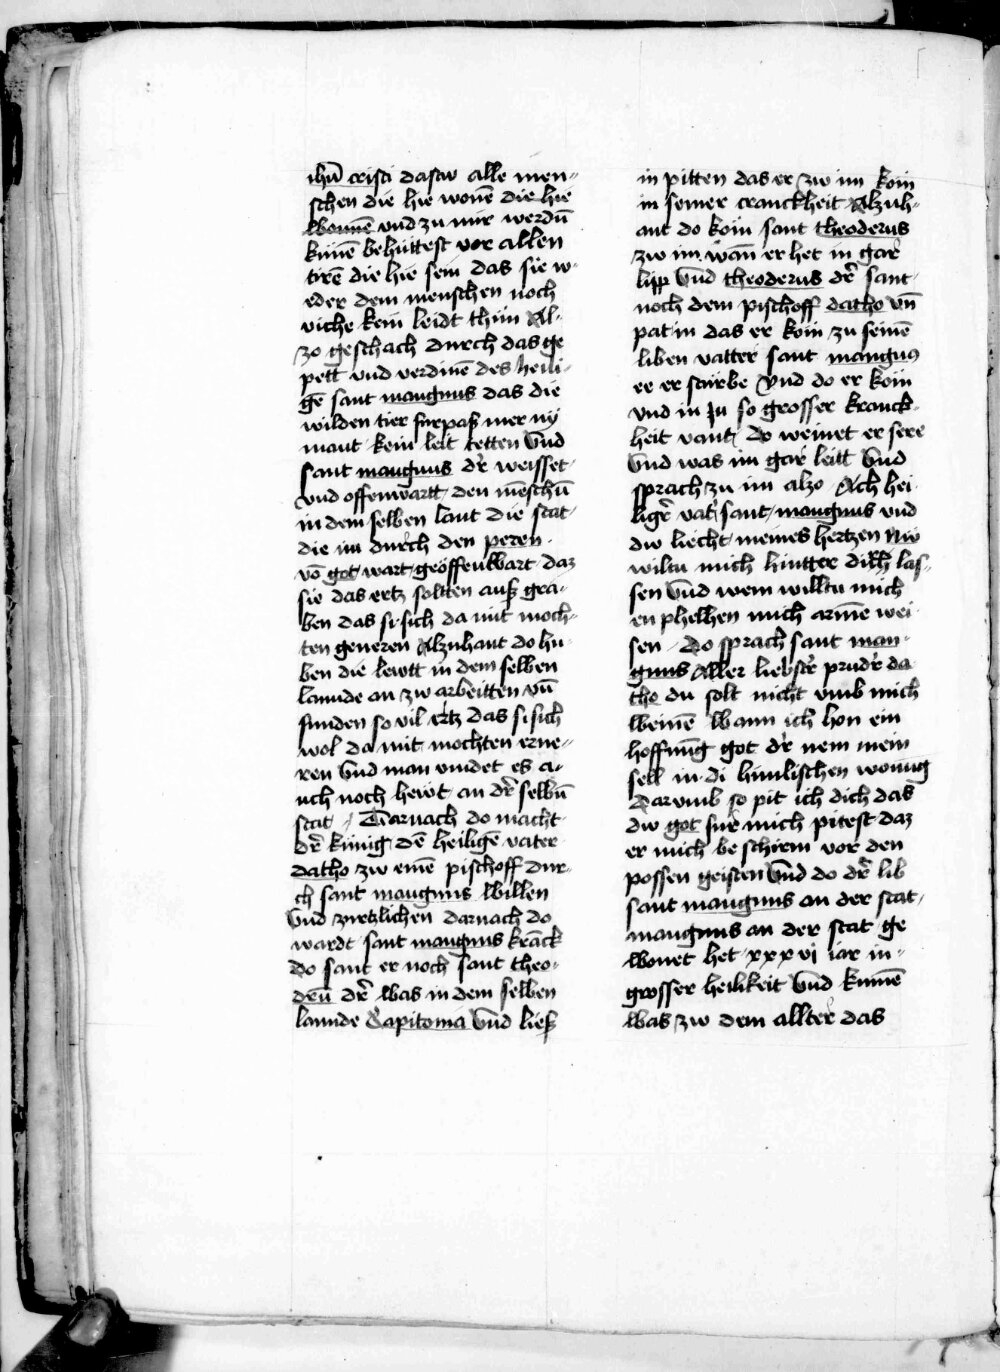 ihũ cristi dastw alle men-
schen die hie wonẽ die hie
wonnẽ vnd zu mir werdñ
kumẽ behüttest vor allen
tirẽ die hie sein das sie w-
eder dem menschen noch
viche kein leidt thün Al-
zo geschach durch das ge
pett vnd verdinẽ des heili-
gẽ sant mangnus das die
wilden tier fürpaß mer ny
mant kein leit tetten Vnd
sant mangnus dr̃ weisset
vnd offenwartt den mẽschñ
in dem selben lant die stat
die im durch den peren
võ got wart geöffenbart daz
sie das ertz soltten auß gra-
ben das si sich da mit moch-
ten generen Alzuhant do hu-
ben die lewtt in dem selben
lannde an zw arbeitten vñ
funden so vil ertz das si sich
wol da mit mochten erne-
ren Vnd man vindet es a-
uch noch hewt an dr̃ selbñ
stat Darnach do macht
dr̃ künig dẽ heiligẽ vater
datho zw einẽ pischoff dur-
ch sant mangnus willen
Vnd zurtzlichen darnach do
wardt sant mangnus krãck
do sant er noch sant theo-
drũ dr̃ was in dem selben
lannde Capitoma Vnd ließ
in pitten das er zw im kom
in seiner cranckheit Alzuh-
ant do kom sant theoderus
zw im wañ er het in gar
lipp Vnd theoderus dr̃ sant
noch dem pischoff datho vñ
pat in das er kom zu seinẽ
liben vatter sant mangnus
ee er sturbe Vnd do er kom
vnd in Ju so grosser kranck-
heit vant do weinet er sere
Vnd was im gar leitt Vnd
sprach zu im alzo Ach hei-
ligr̃ vatr̃ sant mangnus vnd
dw liecht meines hertzen wie
wiltu mich hintter dich las-
sen Vnd wem willtu mich
enphelhen mich armẽ wei-
sen Do sprach sant man-
gnus Aller liebstr̃ prudr̃ da
tho du solt nicht vmb mich
weinẽ Wann ich hon ein
hoffnũg got dr̃ nem mein
sell in di himlischen wonũg
Darvmb so pit ich dich das
dw got für mich pitest daz
er mich be schirem vor den
possen geisten Vnd do dr̃ lib
sant mangnus an der stat
mangnus an der stat ge
wonet het xxxvi iar in
grosser heilikeit Vnd kumẽ
was zw dem allter das